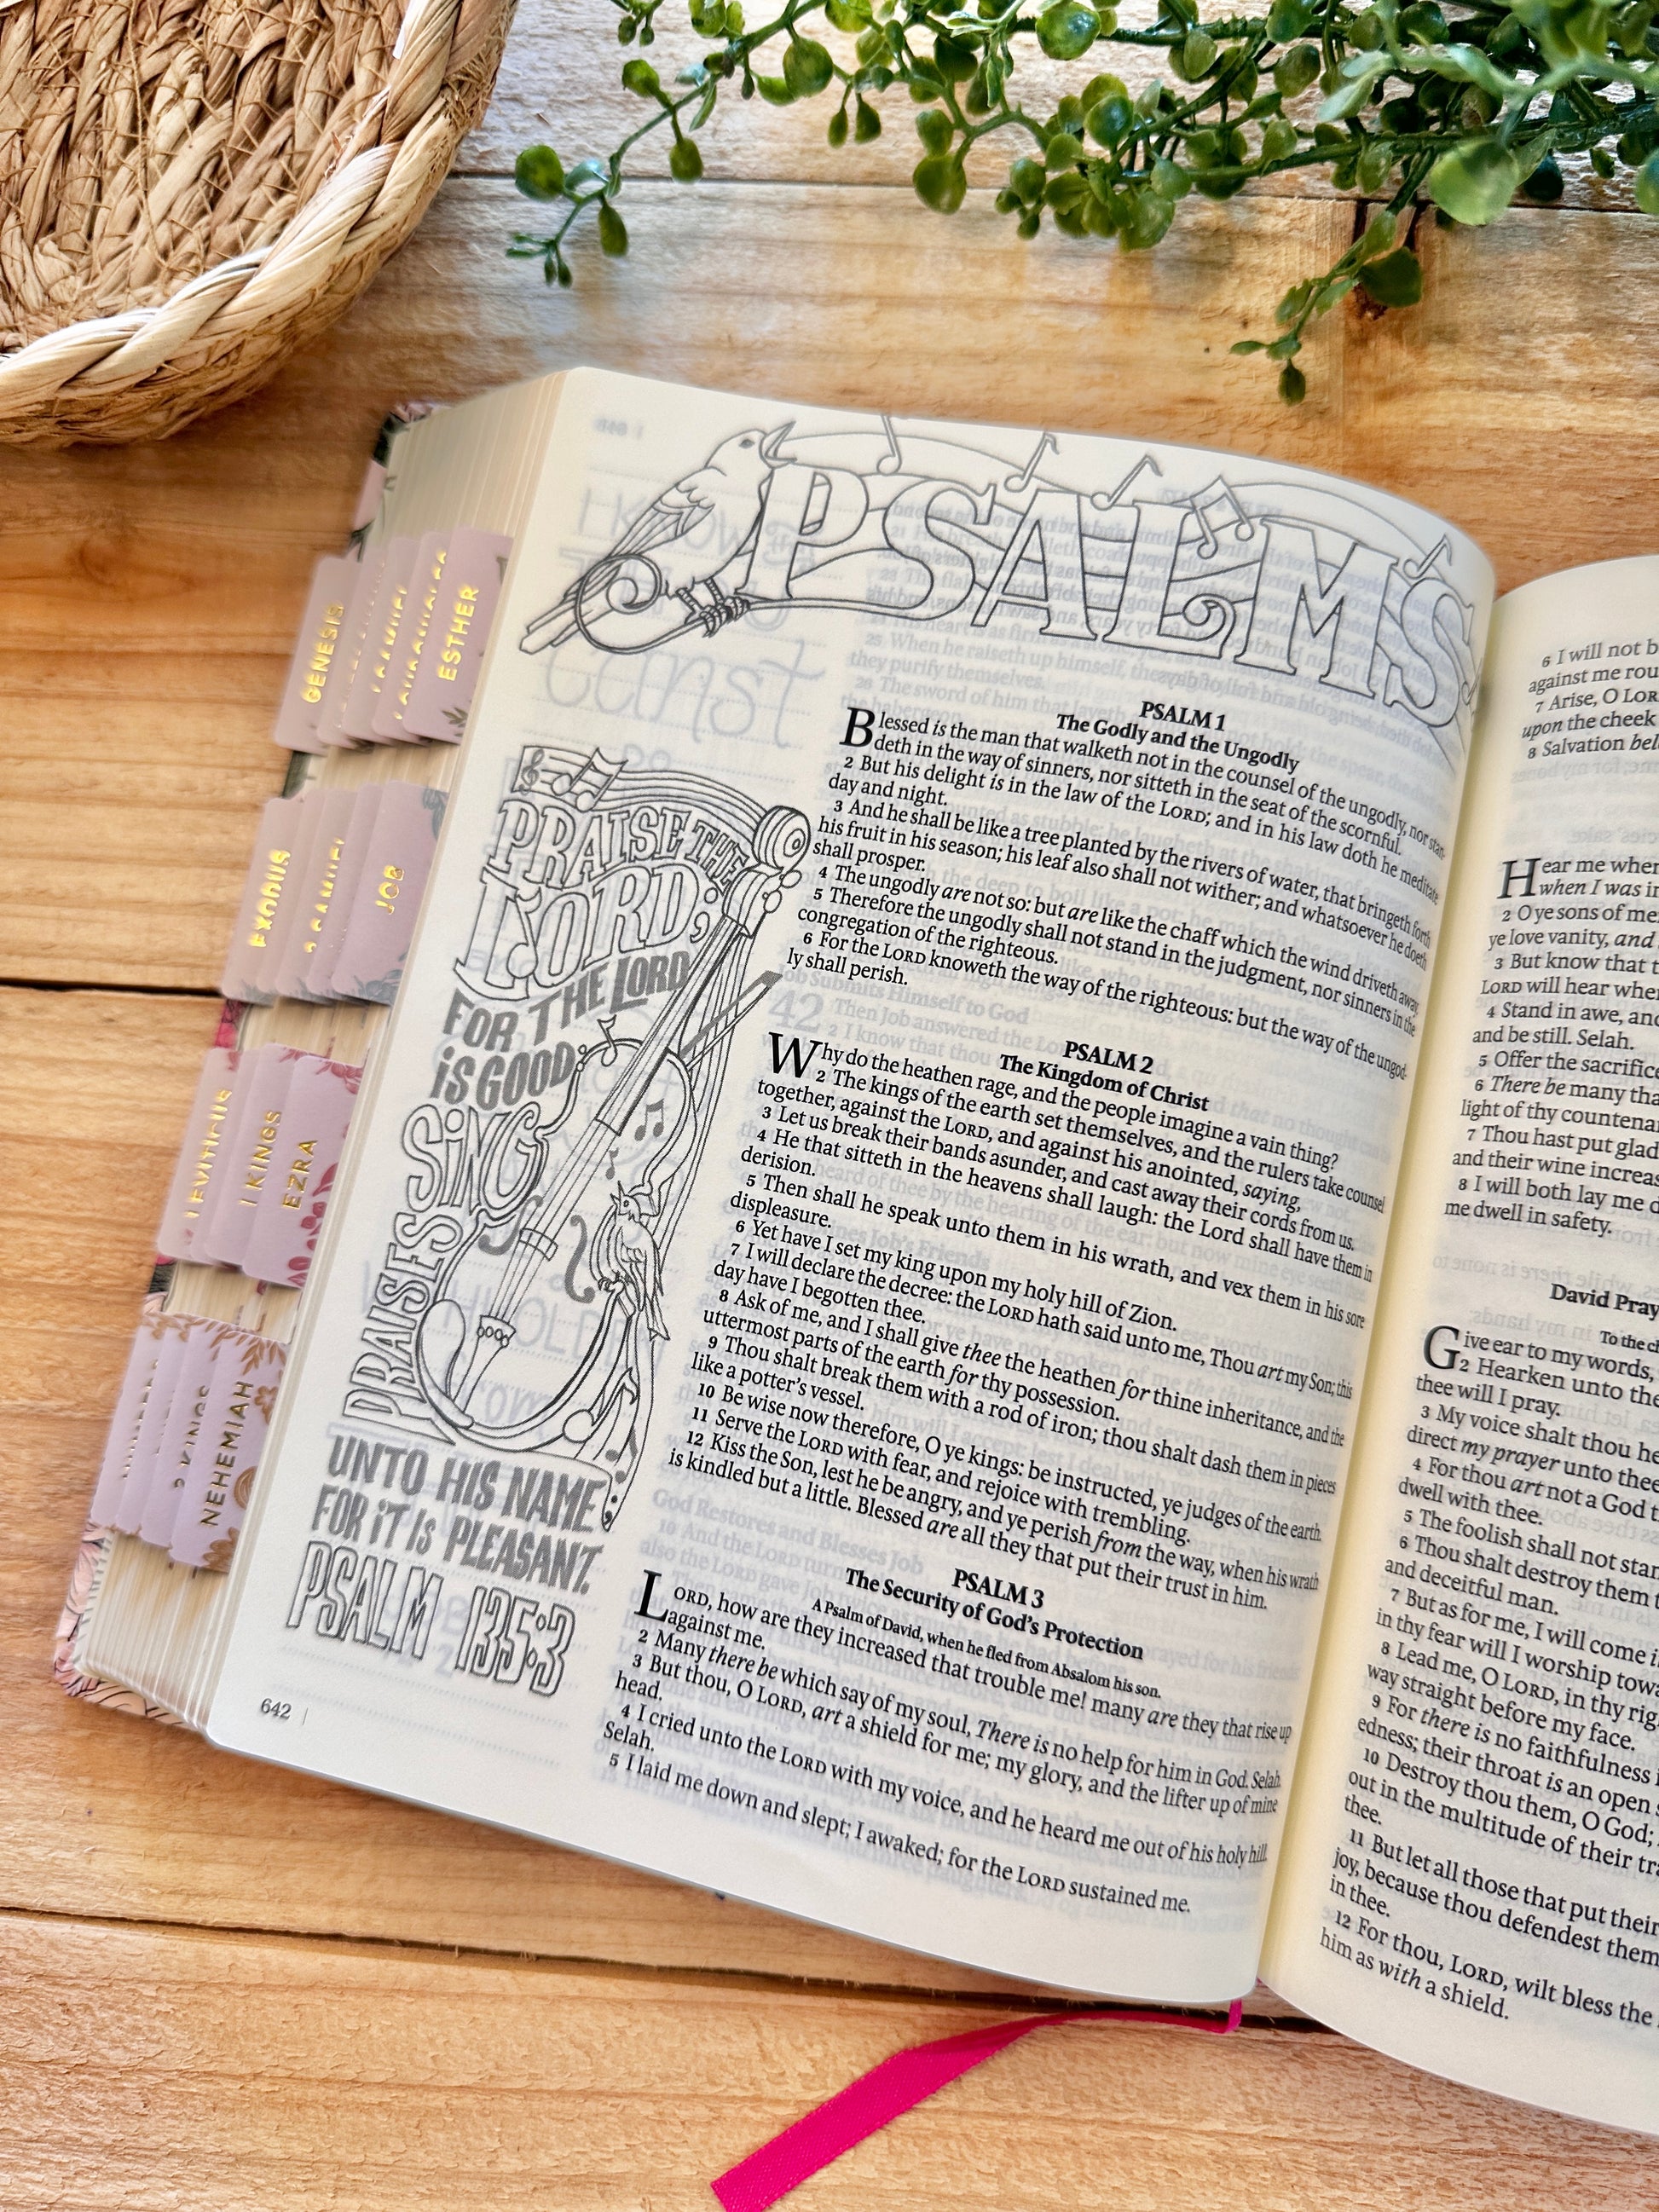 GENESIS
ESTHER
EXODUS
JOB
I KINGS
EZRA
NEHEMIAH
PSALMS
PRAISE THE
LORD;
FOR THE LORD
iS GOOD:
SiNG
PRAISES
UNTO HIS NAME
FOR iT IS PLEASANT.
PSALM 135:3
642
PSALM 1
The Godly and the Ungodly
Blessed is the man that walketh not in the counsel of the ungodly, nor stan-
deth in the way of sinners, nor sitteth in the seat of the scornful.
2 But his delight is in the law of the LORD; and in his law doth he meditate
day and night.
3 And he shall be like a tree planted by the rivers of water, that bringeth forth
his fruit in his season; his leaf also shall not wither; and whatsoever he doeth
shall prosper.
4 The ungodly are not so: but are like the chaff which the wind driveth away.
5 Therefore the ungodly shall not stand in the judgment, nor sinners in the
congregation of the righteous.
6 For the LORD knoweth the way of the righteous: but the way of the ungod-
ly shall perish.
PSALM 2
The Kingdom of Christ
Why do the heathen rage, and the people imagine a vain thing?
2 The kings of the earth set themselves, and the rulers take counsel
together, against the LORD, and against his anointed, saying,
3 Let us break their bands asunder, and cast away their cords from us.
4 He that sitteth in the heavens shall laugh: the Lord shall have them in
derision.
5 Then shall he speak unto them in his wrath, and vex them in his sore
displeasure.
6 Yet have I set my king upon my holy hill of Zion.
7 I will declare the decree: the LORD hath said unto me, Thou art my Son; this
day have I begotten thee.
8 Ask of me, and I shall give thee the heathen for thine inheritance, and the
uttermost parts of the earth for thy possession.
9 Thou shalt break them with a rod of iron; thou shalt dash them in pieces
like a potter's vessel.
10 Be wise now therefore, O ye kings: be instructed, ye judges of the earth.
11 Serve the LORD with fear, and rejoice with trembling.
12 Kiss the Son, lest he be angry, and ye perish from the way, when his wrath
is kindled but a little. Blessed are all they that put their trust in him.
PSALM 3
The Security of God's Protection
A Psalm of David, when he fled from Absalom his son.
LORD, how are they increased that trouble me! many are they that rise up
against me.
2 Many there be which say of my soul, There is no help for him in God. Selah.
3 But thou, O LORD, art a shield for me; my glory, and the lifter up of mine
head.
4 I cried unto the LORD with my voice, and he heard me out of his holy hill.
Selah.
5 I laid me down and slept; I awaked; for the LORD sustained me.
6 I will not b
against me rou
7 Arise, O LOR
upon the cheek
8 Salvation bel
Hear me when
when I was in
2 O ye sons of me
ye love vanity, and
3 But know that t
LORD will hear whe
4 Stand in awe, and
and be still. Selah.
5 Offer the sacrifice
6 There be many tha
light of thy countena
7 Thou hast put glad
and their wine increas
8 I will both lay me d
me dwell in safety.
David Pray
To the ch
Give ear to my words,
2 Hearken unto the
thee will I pray.
3 My voice shalt thou he
direct my prayer unto thee
4 For thou art not a God t
dwell with thee.
5 The foolish shall not stan
6 Thou shalt destroy them t
and deceitful man.
7 But as for me, I will come i
in thy fear will I worship towa
8 Lead me, O LORD, in thy rig
way straight before my face.
9 For there is no faithfulness i
edness; their throat is an open s
10 Destroy thou them, O God;
out in the multitude of their tra
thee.
11 But let all those that put their
joy, because thou defendest them
in thee.
12 For thou, LORD, wilt bless the
him as with a shield.